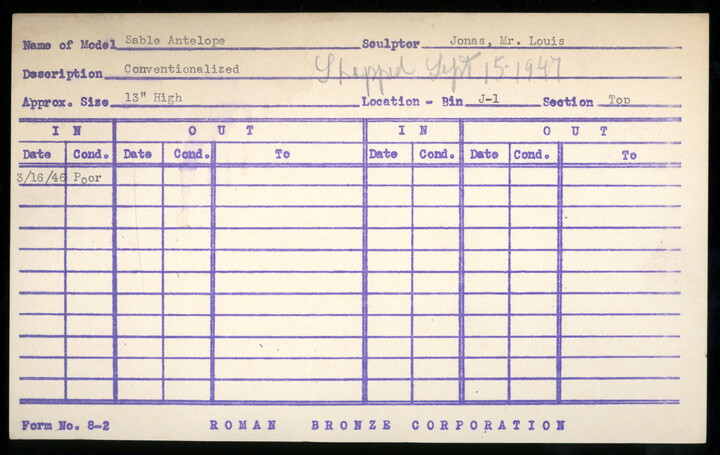 Name of Model Sable Antelope Sculptor Jonas, Mr. Louis
Description Conventionalized Shipped Sept 15-1947
Approx. Size 13" High Location - Bin J-1 Section Top
I N O U T I N O U T
Date Cond. Date Cond. To Date Cond. Date Cond. To
3/16/46 Poor
Form No. 8-2 ROMAN BRONZE CORPORATION